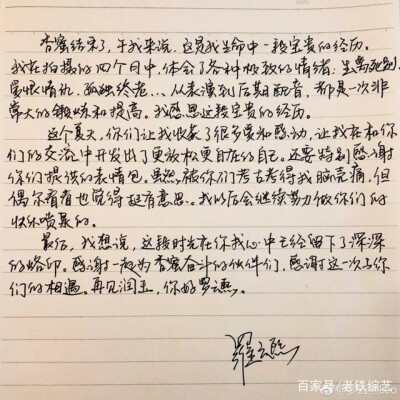 香蜜结束了，于我来说，这是我生命中一段宝贵的经历。
我在拍摄的四个月中，体会了各种极致的情绪：生离死别，
爱恨情仇，孤独终老...，从表演到后期配音，都是一次非
常大的锻炼和提高。我感恩这段宝贵的经历。
这个夏天，你们让我收获了很多爱和感动，让我在和你
们的交流中开发出了更放松更自在的自己。还要特别感谢
你们提供的表情包。虽然被你们考古考得我脑壳痛，但
偶尔看看也觉得挺有意思。我以后会继续努力做你们的
快乐喷泉的。
最后，我想说，这段时光在你我心中已经留下了深深
的烙印。感谢一起为香蜜奋斗的伙伴们，感谢这一次与你
们的相遇。再见润玉，你好罗云熙。
羅云熙
百家号/老铁综艺